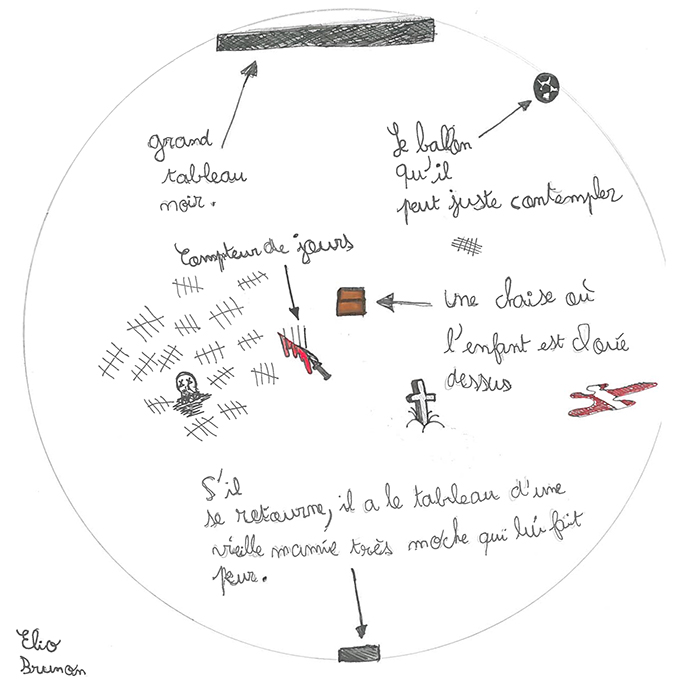 grand
tableau
noir.
Le ballon
qu'il
peut juste contempler
Compteur de jours
une chaise où
l'enfant est clouée
dessus
S'il
se retourne, il a le tableau d'une
vieille mamie très moche qui lui fait
peur.
Elio
Brunon